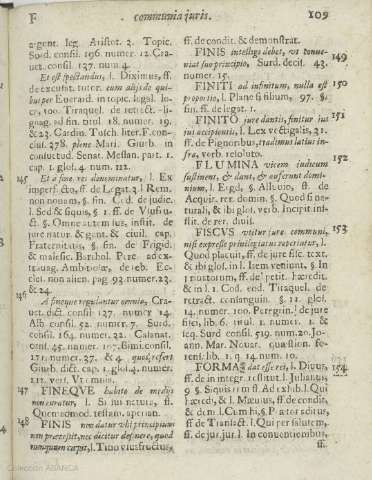 F communia juris. 109
argent. leg. Aristot. 2. Topic.
Surd. consil. 196. numer. 12. Cra-
uet. consil. 137. num. 4.
Et est spectandus, l. Diximus, ff.
de excusat. tutor. cum alijs de qui-
bus per Euerard. in topic. legal. lo-
co, 100. Tiraquel. de retract. li-
gnag. ad fin. titul. 18. numer. 19.
& 23. Cardin. Tusch. litter. F. con-
clus. 278. plene Mari. Giurb. in
consuetud. Senat. Messan. part. 1.
cap. 1. glos. 4. num. 111.
145 Et a fine rei denominatur, l. Ex
imperfecto, ff. de Legat. 3. l. Rem,
non nouam, §. fin. Cod. de judic.
l. Sed & si quis, § 1. ff. de Vsufru-
ct. §. Omne autem ius, instit. de
jure natur. gent. & ciuil. cap.
Fraternitatis, §. fin. de Frigid.
& malefic. Barthol.
Eccle-
non alien. pag. 93. numer. 23.
& 24.
146 A fineque regulantur omnia, Cra-
uet. dict. consil. 137. numer. 14.
Alb. consil. 52. numer. 7. Surd.
consil. 164. numer. 32.
consil. 45. numer.
171. numer. 37. & 4. quod, refert
Giurb. dict. cap. 1. glos. 4. numer.
111.
147 FINEQVE habito de medijs
non curatur, l. Si ita natura, ff.
Quemadmod. testam. aperian.
148 FINIS non datur vbi principium
non præcessit, nec dicitur desinere, quod
nunquam cœpit, l. Titio vsusfructus,
ff. de condit. & demonstrat.
FINIS intelligi debet, vt conue- 149
niat suo principio, Surd. decis. 43.
numer. 15.
FINITI ad infinitum, nulla est 150
proportio, l. Plane si filium, 97. §.
fin. ff. de legat. 1.
FINITO jure dantis, finitur ius 151
ius accipientis, l. Lex vectigalis, 31.
ff. de Pignoribus, tradimus latius in-
fra, verb. resoluto.
FLUMINA vicem iudicum 152
sustinent, & dant, & auferunt domi-
nium, l. Ergò, §. Alluuio, ff. de
Acquir. rer. domin. §. Quod si na-
turali, & ibi glos. verb. Incipit in-
stit. de rer. diuis.
FISCVS vtitur jure communi, 153
nisi expresse priuilegiatus reperiatur, l.
Quod placuit, ff. de jure fisc. text.
& ibi glos. in l. Item veniunt, § In
priuatorum, ff. de Petit. hæredit.
& in l. 1. Cod. eod. Tiraquel. de
retract. consanguin. §. 11. glos.
14. numer. 100. Peregrin. de jure
fisci, lib. 6. titul. 1. numer. 1. &
seq. Surd. consil. 519. num. 20. Jo-
ann. Mar. Nouar. quæstion. fo-
rens. lib. 1. q. 14. num. 10.
FORMA dat esse rei, l. Diuus, 154
ff. de in integr. restitut. l. Julianus
9. §. Si quis rem ff. Ad exhib. l. Qui
hæredi, & l. Mæuius, ff. de condit.
& dem. l. Cum hi, §. Prætor
ff. de Transact. l. Qui per salutem,
ff. de jur. jur. l. In conuentionibus,
ff.
Colección ABANCA